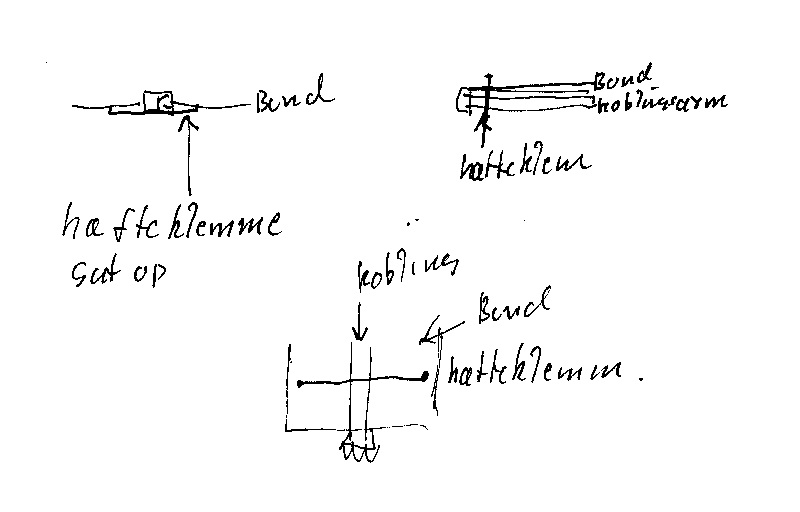 Bund
hæfteklemme
sat op
Bund
koblingsarm
hætteklem
koblings
Bund
hætteklemm.